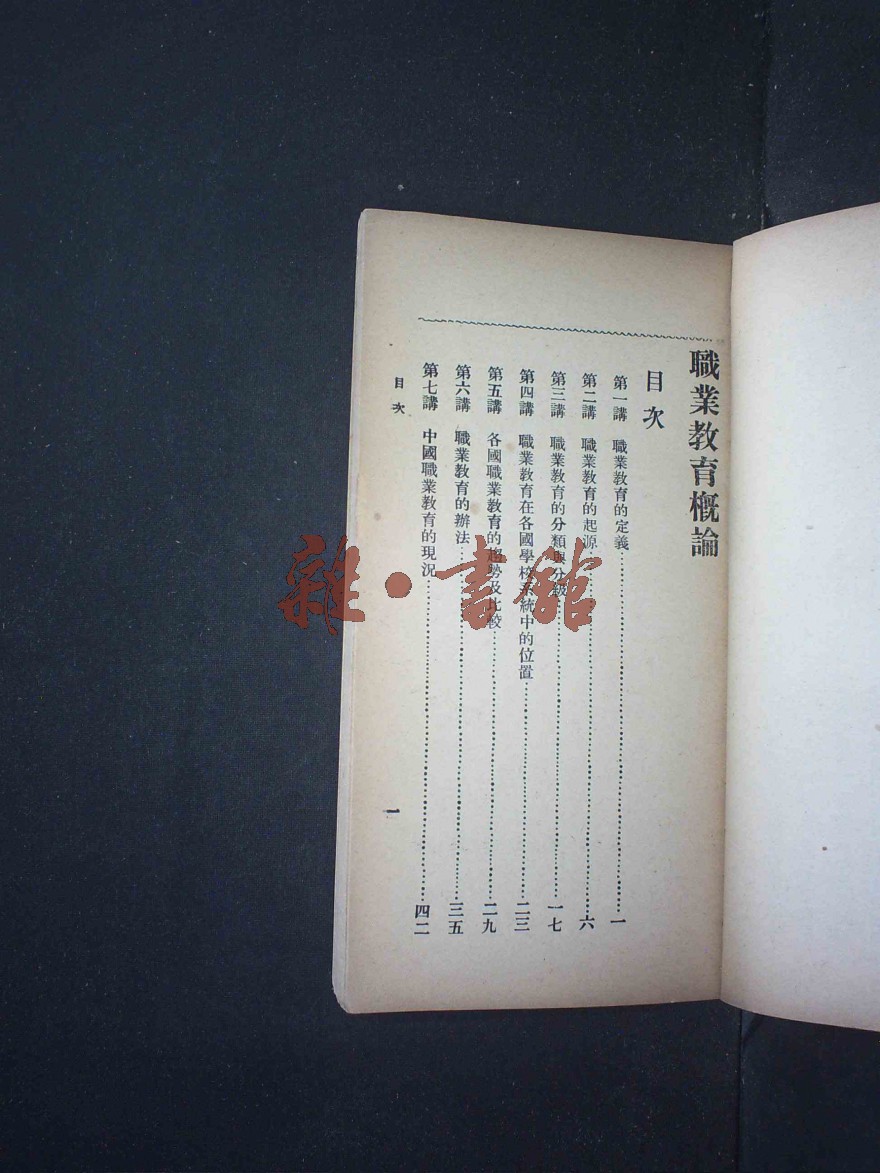 職業教育概論
目次
第一講 職業教育的定義……一
第二講 職業教育的起源……六
第三講 職業教育的分類與分級……一七
第四講 職業教育在各國學校系統中的位置……二三
第五講 各國職業教育的趨勢及比較……二九
第六講 職業教育的辦法……三五
第七講 中國職業教育的現況……四二
目次
一
雜·書館